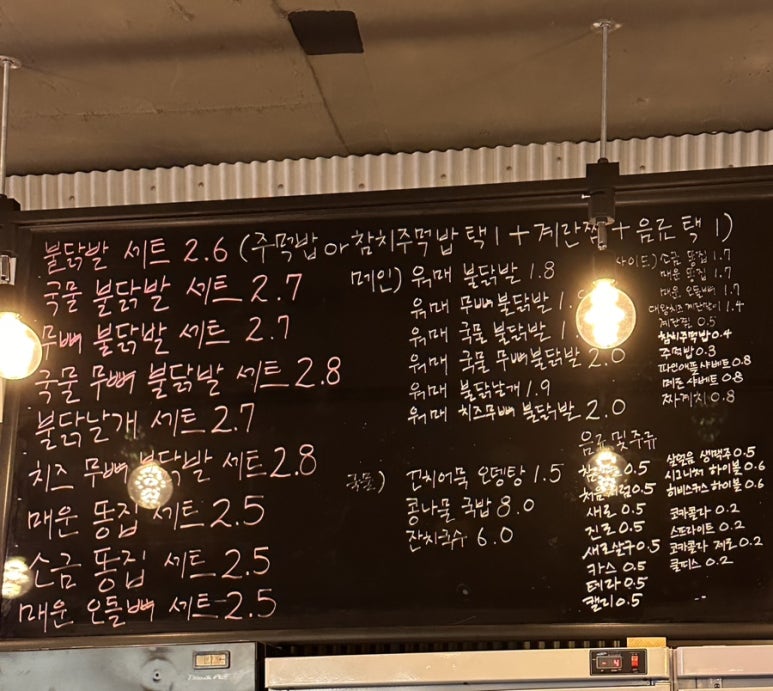 불닭발 세트 2.6 (주먹밥 or 참치주먹밥 택1 + 계란찜 + 음료 택 1)
국물 불닭발 세트 2.7
무뼈 불닭발 세트 2.7
국물 무뼈 불닭발 세트 2.8
불닭날개 세트 2.7
치즈 무뼈 불닭발 세트 2.8
매운 똥집 세트 2.5
소금 똥집 세트 2.5
매운 오돌뼈 세트 2.5
메인) 워매 불닭발 1.8
워매 무뼈불닭발
워매 국물 불닭발
워매 국물 무뼈불닭발 2.0
워매 불닭날개 1.9
워매 치즈무뼈 불닭발 2.0
국물) 김치어묵 오뎅탕 1.5
콩나물 국밥 8.0
잔치국수 6.0
사이드) 소금 똥집 1.7
매운 똥집 1.7
매운 오돌뼈 1.7
대왕치즈 계란말이 1.4
계란찜 0.5
참치주먹밥 0.4
주먹밥 0.3
파인애플 샤베트 0.8
메론 샤베트 0.8
짜계치 0.8
음료 및 주류
0.5
처음처럼 0.5
새로 0.5
진로 0.5
새로살구 0.5
카스 0.5
테라 0.5
켈리 0.5
살얼음 생맥주 0.5
시그니처 하이볼 0.6
히비스커스 하이볼 0.6
코카콜라 0.2
스프라이트 0.2
코카콜라 제로 0.2
쿨피스 0.2